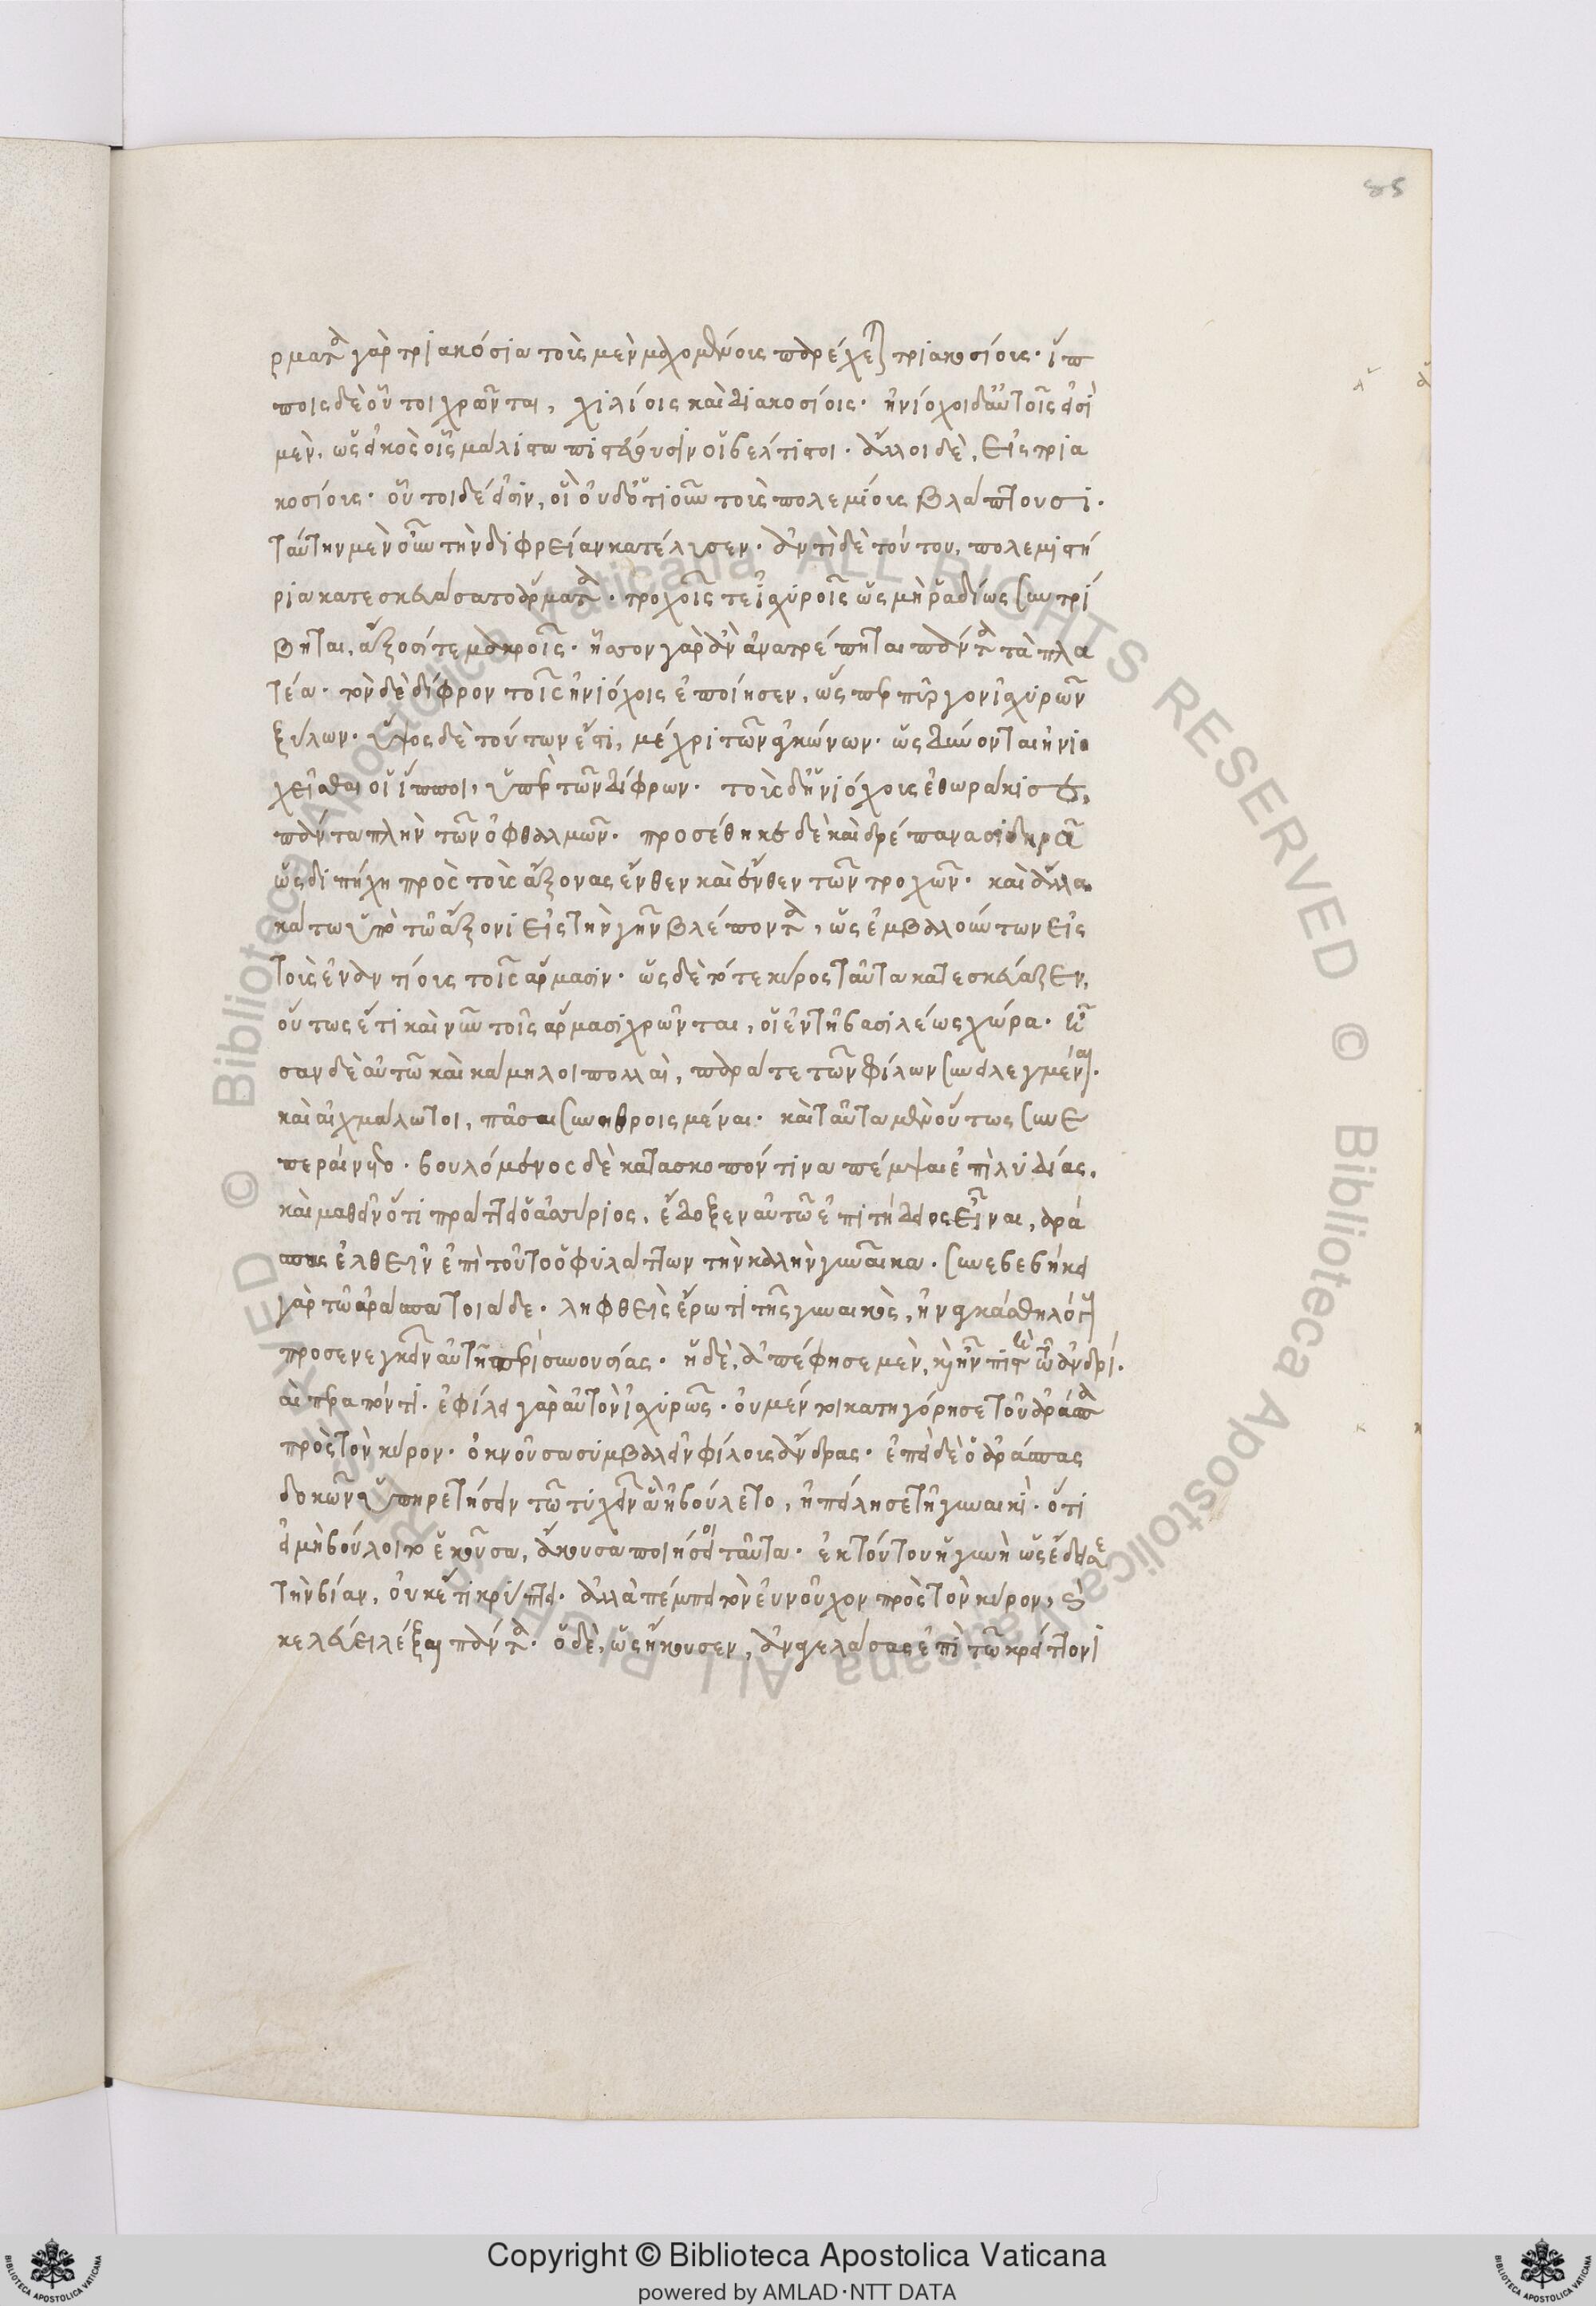 85
ρματα γὰρ τριακόσια τοὺς μὲν μαχομένους παρέχεται τριακοσίους· ἵπ
ποις δὲ οὗτοι χρῶνται, χιλίοις καὶ διακοσίοις· ἡνίοχοι δ' αὐτοῖς εἰσὶ
μὲν, ὡς εἰκὸς οἷς μάλιστα πιστεύουσιν οἱ βέλτιστοι· ἄλλοι δὲ, εἰς τρια
κοσίους· οὗτοι δέ εἰσιν, οἳ οὐδ' ὁτιοῦν τοὺς πολεμίους βλάπτουσι.
ταύτην μὲν οὖν τὴν διφρείαν κατέλυσεν· ἀντὶ δὲ τούτου, πολεμιστή
ρια κατεσκευάσατο ἅρματα· τροχοῖς τε ἰσχυροῖς ὡς μὴ ῥᾳδίως συντρί
βηται, ἄξοσί τε μακροῖς· ἧττον γὰρ ἂν ἀνατρέπηται πάντα τὰ πλα
τέα· τὸν δὲ δίφρον τοῖς ἡνιόχοις ἐποίησεν, ὥσπερ πύργον ἰσχυρῶν
ξύλων· ὕψος δὲ τούτων ἐστὶ, μέχρι τῶν ἀγκώνων· ὡς δύνονται ἡνιο
χεῖσθαι οἱ ἵπποι, ὑπὲρ τῶν δίφρων· τοὺς δ' ἡνιόχους ἐθωράκισε,
πάντα πλὴν τῶν ὀφθαλμῶν· προσέθηκε δὲ καὶ δρέπανα σιδηρᾶ
ὡς διπήχη πρὸς τοὺς ἄξονας ἔνθεν καὶ ἔνθεν τῶν τροχῶν· καὶ ἄλλα
κάτω ὑπὸ τῷ ἄξονι εἰς τὴν γῆν βλέποντα, ὡς ἐμβαλούντων εἰς
τοὺς ἐναντίους τοῖς ἅρμασιν· ὡς δὲ τότε κῦρος ταῦτα κατεσκεύαζεν,
οὕτως ἔτι καὶ νῦν τοῖς ἅρμασι χρῶνται, οἱ ἐν τῇ βασιλέως χώρᾳ· ἦ
σαν δὲ αὐτῷ καὶ κάμηλοι πολλαὶ, παρά τε τῶν φίλων συνειλεγμέναι.
καὶ αἰχμάλωτοι, πᾶσαι συνηθροισμέναι· καὶ ταῦτα μὲν οὕτως συνε
περαίνετο· βουλόμενος δὲ κατάσκοπόν τινα πέμψαι ἐπὶ λυδίας,
καὶ μαθεῖν ὅτι πράττει ὁ ἀσσύριος, ἔδοξεν αὐτῷ ἐπιτήδειος εἶναι, ἀρά
σπας ἐλθεῖν ἐπὶ τοῦτο ὁ φυλάττων τὴν καλὴν γυναῖκα· συνεβεβήκει
γὰρ τῷ ἀράσπα τοιάδε· ληφθεὶς ἔρωτι τῆς γυναικὸς, ἠναγκάσθη λόγους
προσενεγκεῖν αὐτῇ περὶ συνουσίας· ἡ δὲ, ἀπέφησε μὲν, καὶ ἦν πιστὴ τῷ ἀνδρὶ.
αἰπραπόντι· ἐφίλει γὰρ αὐτὸν ἰσχυρῶς· οὐ μέντοι κατηγόρησε τοῦ ἀράσπα
πρὸς τὸν κῦρον· ὀκνοῦσα συμβαλεῖν φίλους ἄνδρας· ἐπεὶ δὲ ὁ ἀράσπας
δοκῶν ὑπηρετήσειν τῷ τυχεῖν ἃ ἠβούλετο, ἠπείλησε τῇ γυναικὶ· ὅτι
εἰ μὴ βούλοιτο ἑκοῦσα, ἄκουσα ποιήσοι ταῦτα· ἐκ τούτου ἡ γυνὴ ὡς ἔδεισε
τὴν βίαν, οὐκέτι κρύπτει· ἀλλὰ πέμπει τὸν εὐνοῦχον πρὸς τὸν κῦρον, καὶ
κελεύει λέξαι πάντα· ὁ δὲ, ὡς ἤκουσεν, ἀναγελάσας ἐπὶ τῷ κρείττονι
Copyright © Biblioteca Apostolica Vaticana
powered by AMLAD·NTT DATA